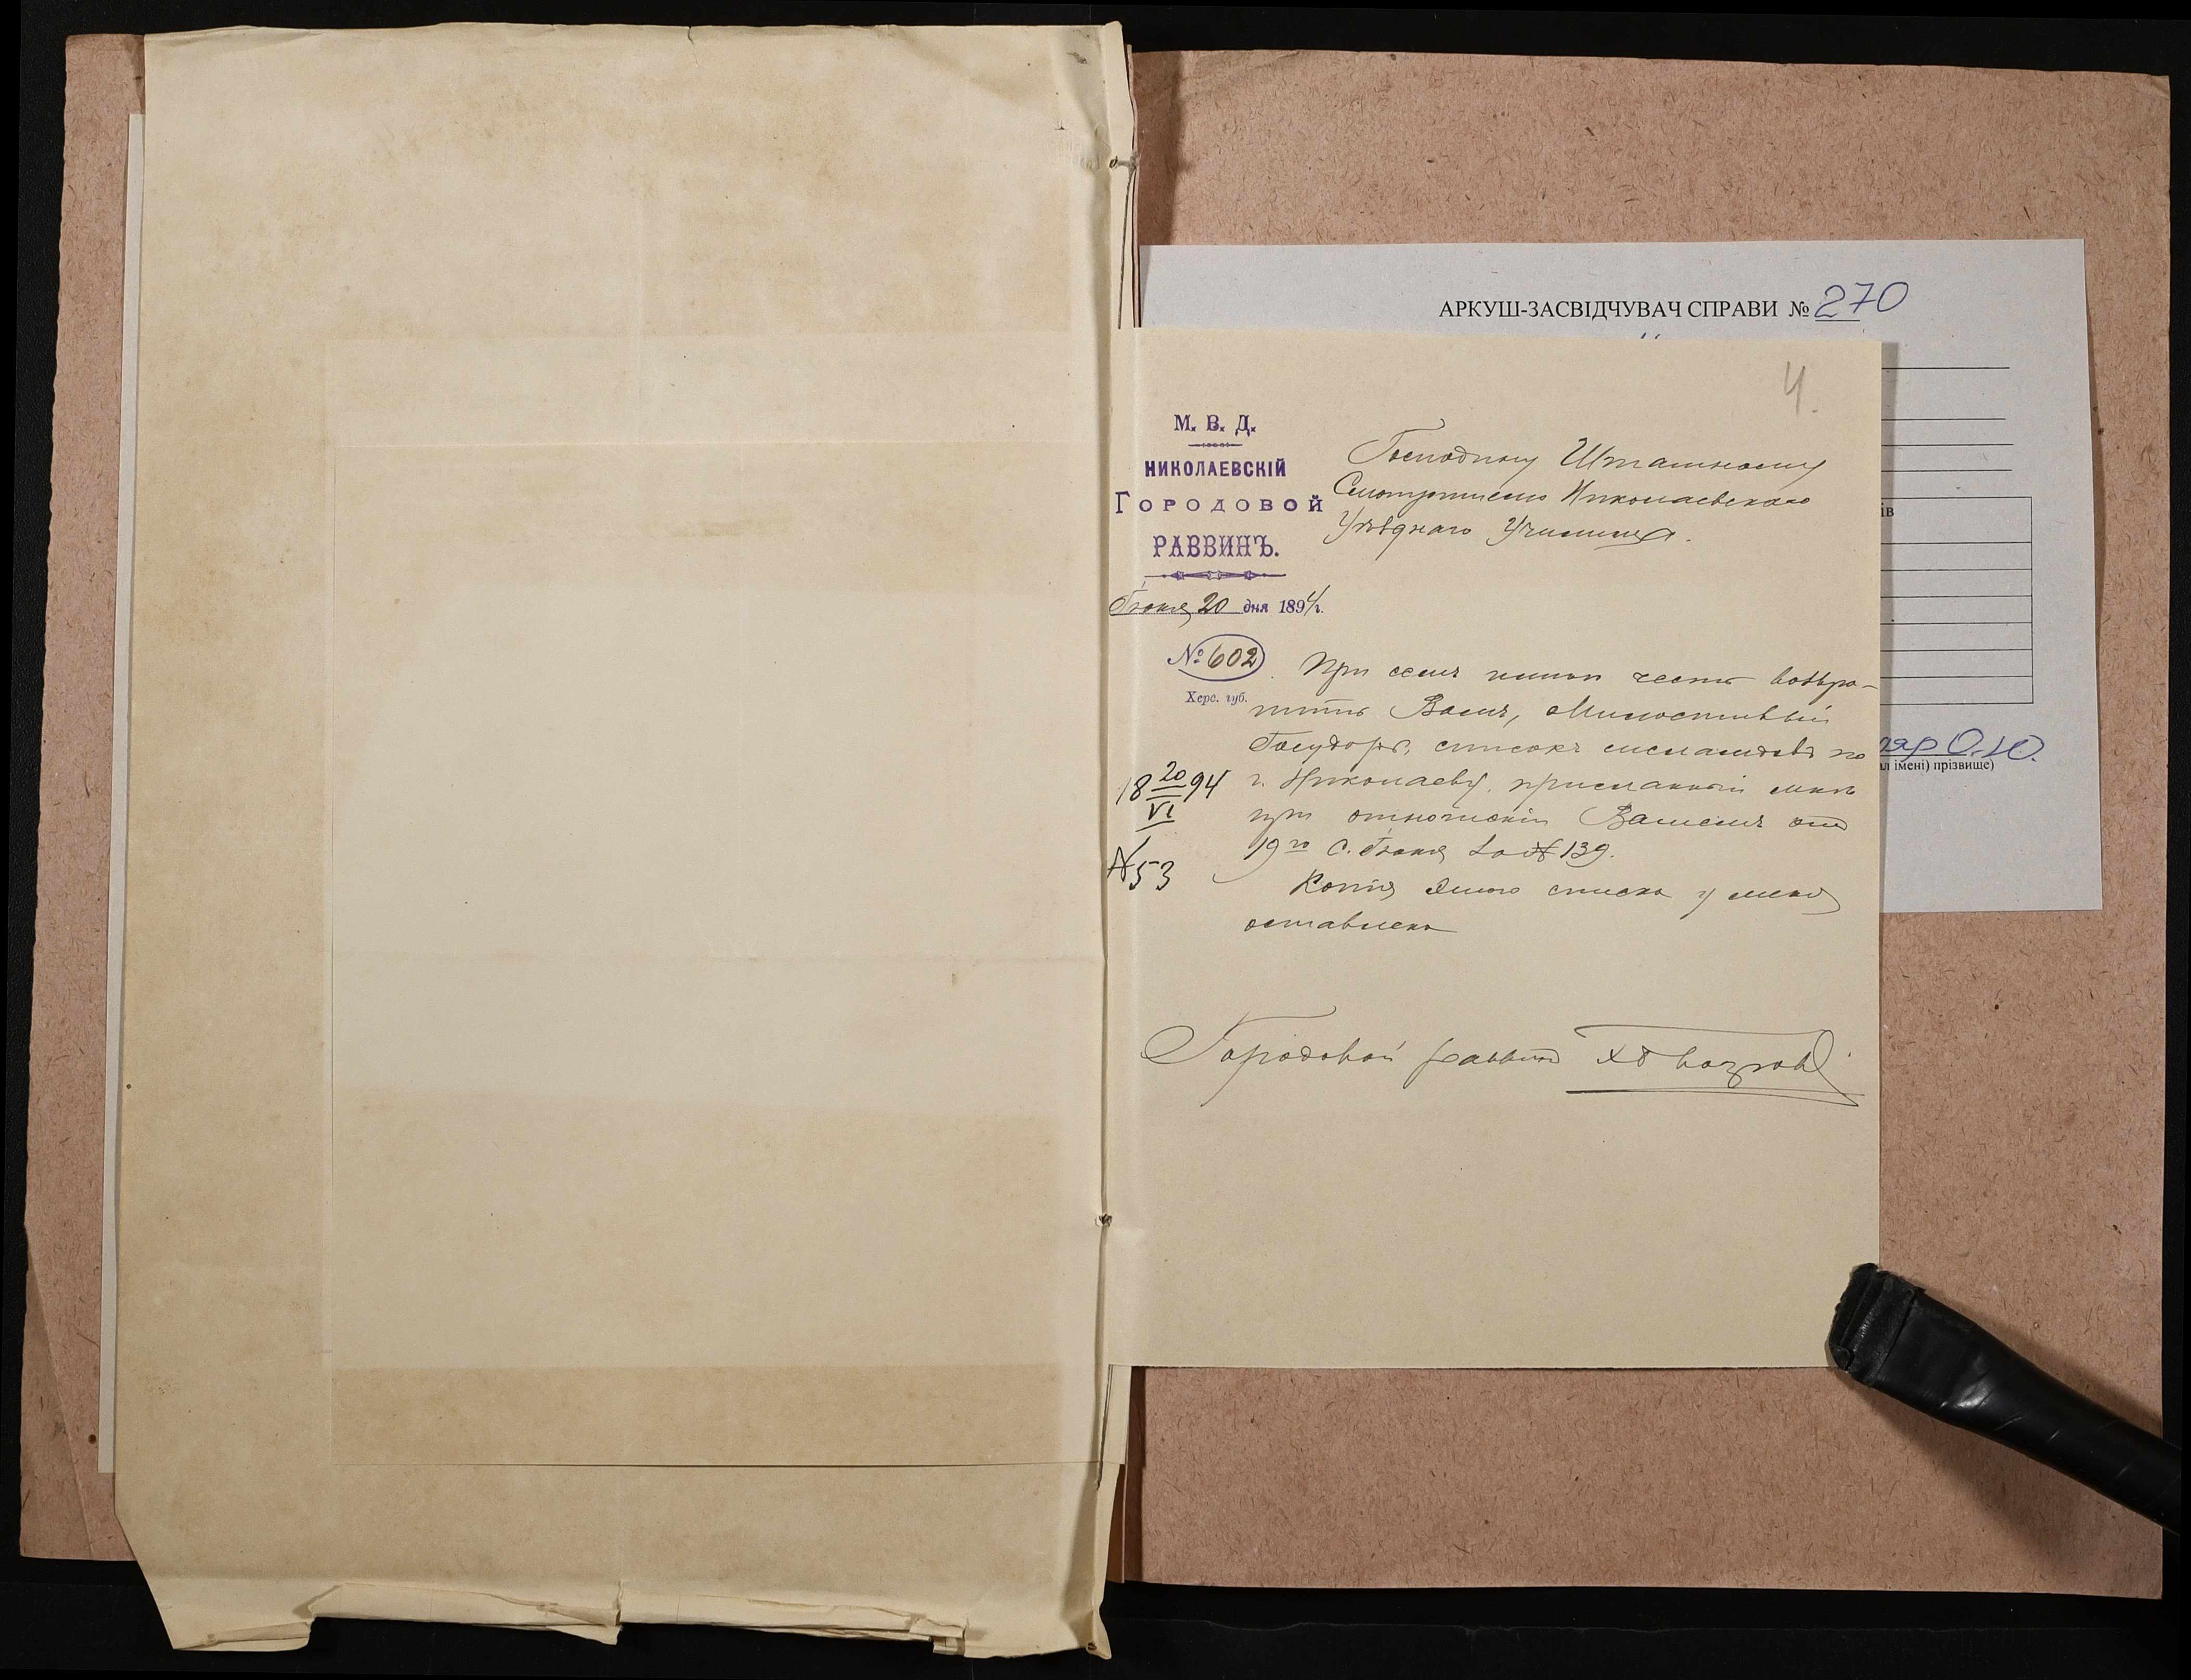 АРКУШ-ЗАСВІДЧУВАЧ СПРАВИ № 270
4.
М. В. Д.
НИКОЛАЕВСКІЙ
ГОРОДОВОЙ
РАВВИНЪ.
Іюня 20 дня 1894 г.
№ 602
Херс. губ.
Господину Штатному
Смотрителю Николаевскаго
Уѣзднаго Училища.
При семъ имѣю честь возвра-
тить Вамъ, Милостивый
Государь, списокъ меламдовъ по
г. Николаеву, присланный мнѣ
при отношеніи Вашемъ отъ
19го с. Іюня за № 139.
Копія этого списка у меня
оставлена
18 20/VI 94
№ 53
Городовой раввинъ
ів
яр О.Ю.
ал імені) прізвище)